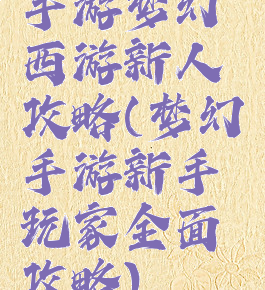 手游梦幻
西游新人
攻略(梦幻
手游新手
玩家全面
攻略)